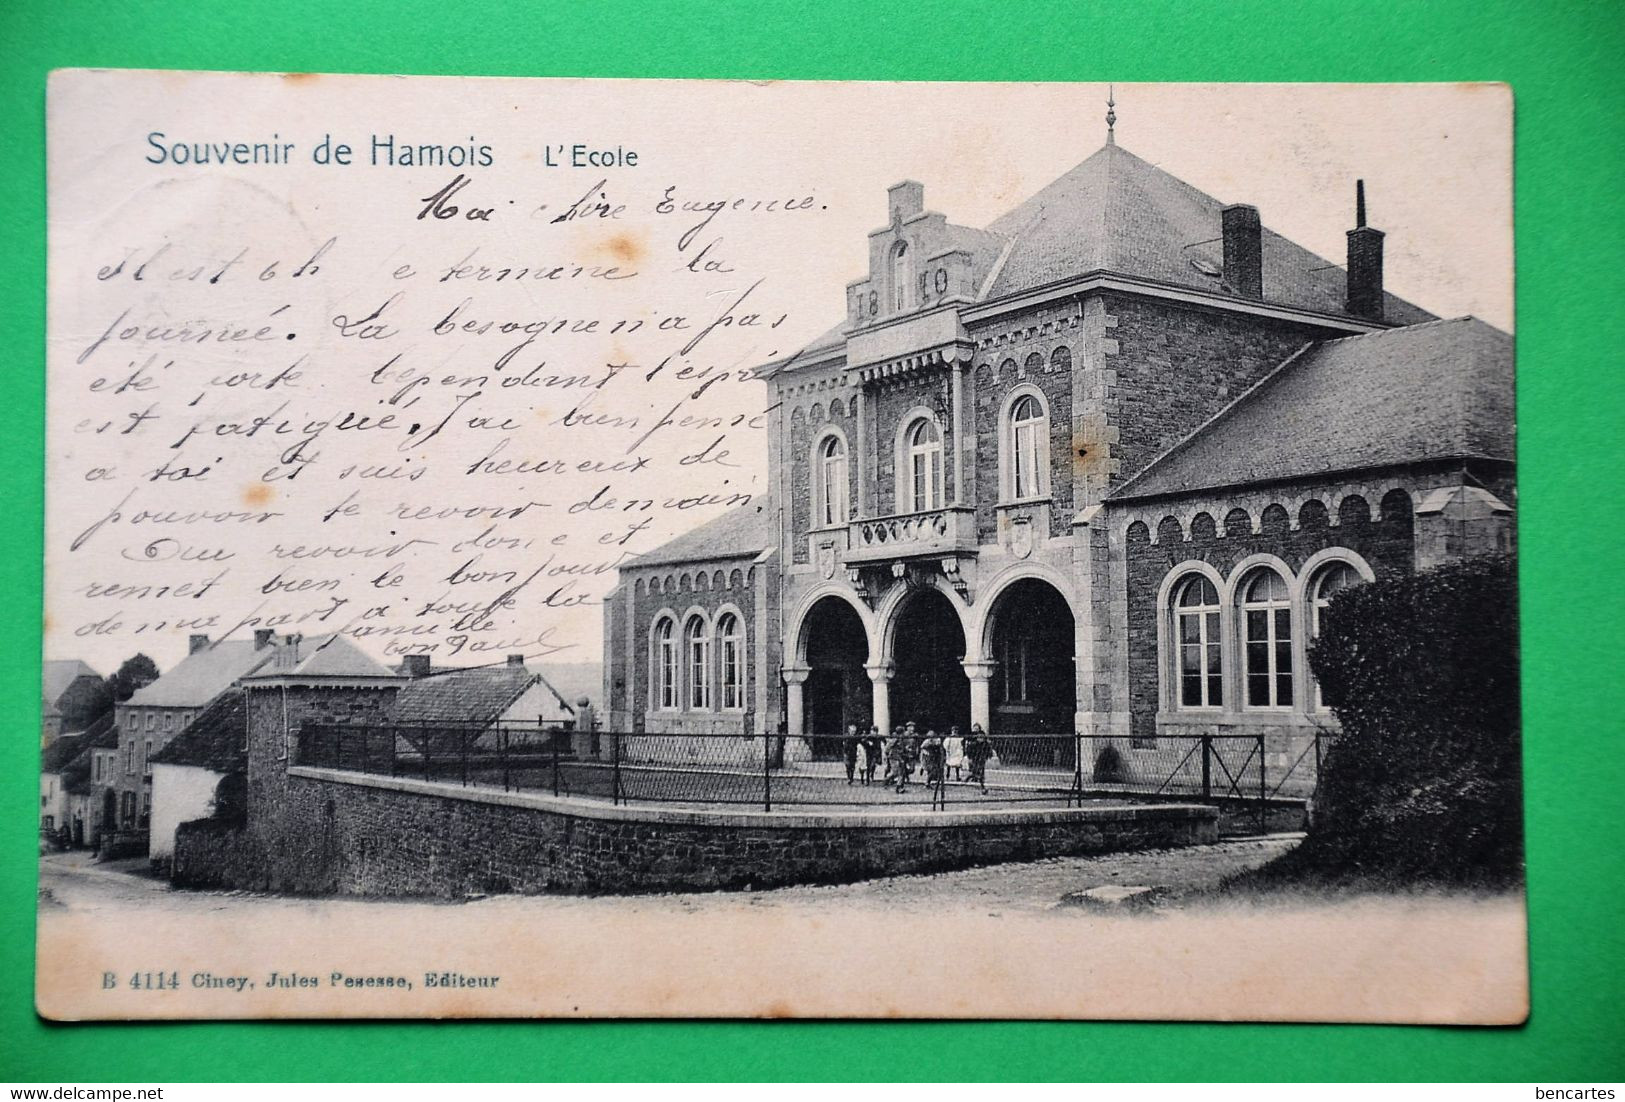 Souvenir de Hamois L'Ecole
Ma chère Eugenie.
Il est 6 h e termine la
journeé. La besogne n'a pas
été forte. Cependant l'esprit
est fatigué. J'ai bien pensé
a toi et suis heureux de
pouvoir te revoir demain.
Au revoir donc et
remet bien le bonjour
de ma part à toute la
famille
ton Paul
1810
B 4114 Ciney, Jules Pesesse, Editeur
bencartes